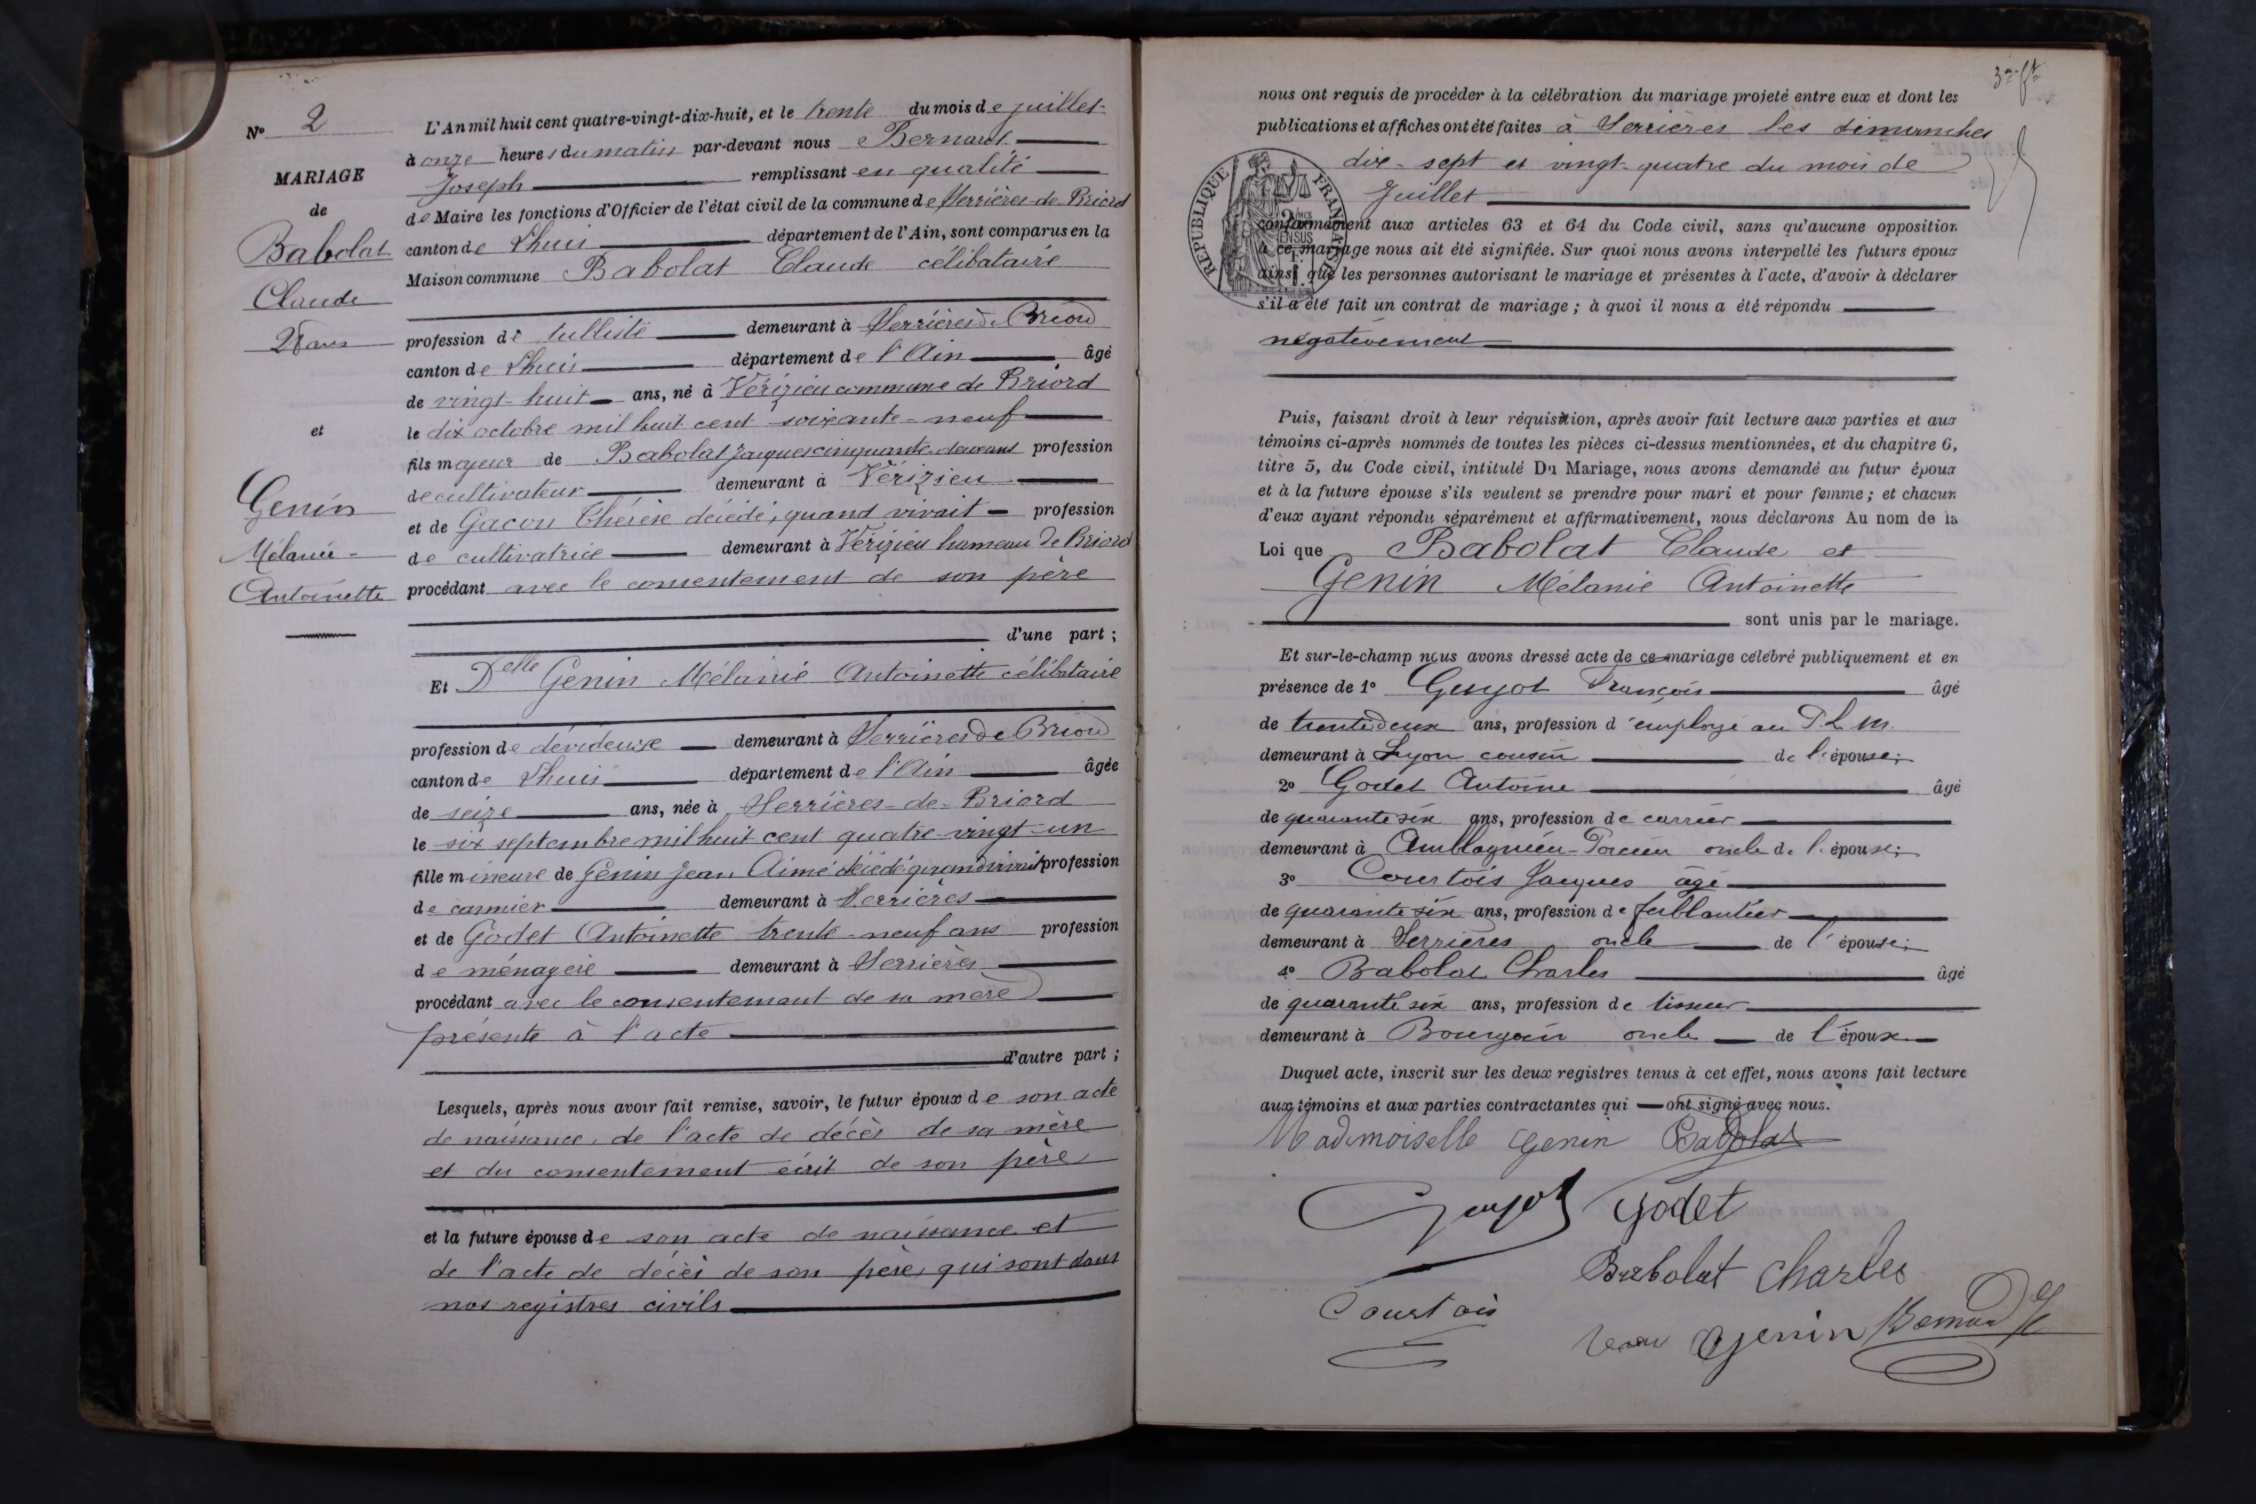 N° 2
MARIAGE
de
Babolat
Claude
28 ans
et
Genin
Mélanie
Antoinette
L'An mil huit cent quatre-vingt-dix-huit, et le trente du mois de juillet
à onze heures du matin par-devant nous Bernard
Joseph remplissant en qualité
de Maire les fonctions d'Officier de l'état civil de la commune de Serrières-de-Briord
canton de Lhuis département de l'Ain, sont comparus en la
Maison commune Babolat Claude célibataire
profession de tulliste demeurant à Serrières de Briord
canton de Lhuis département de l'Ain âgé
de vingt-huit ans, né à Vérizieu commune de Briord
le dix octobre mil huit cent soixante-neuf
fils majeur de Babolat Jacques cinquante profession
de cultivateur demeurant à Vérizieu
et de Gacon Thérèse décédé, quand vivait profession
de cultivatrice demeurant à Vérizieu hameau de Briord
procédant avec le consentement de son père
d'une part ;
Et Delle Genin Mélanie Antoinette célibataire
profession de dévideuse demeurant à Serrières de Briord
canton de Lhuis département de l'Ain âgée
de seize ans, née à Serrières-de-Briord
le six septembre mil huit cent quatre-vingt-un
fille mineure de Genin Jean Aimé décédé quand vivait profession
de demeurant à Serrières
et de Godet Antoinette trente-neuf ans profession
de ménagère demeurant à Serrières
procédant avec le consentemant de sa mère
présente à l'acte
d'autre part ;
Lesquels, après nous avoir fait remise, savoir, le futur époux de son acte
de naissance, de l'acte de décès de sa mère
et du consentement écrit de son père
et la future épouse de son acte de naissance et
de l'acte de décès de son père, qui sont dans
nos registres civils
nous ont requis de procéder à la célébration du mariage projeté entre eux et dont les
publications et affiches ont été faites à Serrières les dimanches
dix-sept et vingt-quatre du mois de
Juillet
REPUBLIQUE FRANÇAISE
conformément aux articles 63 et 64 du Code civil, sans qu'aucune opposition
à ce mariage nous ait été signifiée. Sur quoi nous avons interpellé les futurs époux
ainsi que les personnes autorisant le mariage et présentes à l'acte, d'avoir à déclarer
s'il a été fait un contrat de mariage ; à quoi il nous a été répondu
négativement
Puis, faisant droit à leur réquisition, après avoir fait lecture aux parties et aux
témoins ci-après nommés de toutes les pièces ci-dessus mentionnées, et du chapitre 6,
titre 5, du Code civil, intitulé Du Mariage, nous avons demandé au futur époux
et à la future épouse s'ils veulent se prendre pour mari et pour femme ; et chacun
d'eux ayant répondu séparément et affirmativement, nous déclarons Au nom de la
Loi que Babolat Claude et
Genin Mélanie Antoinette
sont unis par le mariage.
Et sur-le-champ nous avons dressé acte de ce mariage célébré publiquement et en
présence de 1° Guyot François âgé
de trente deux ans, profession d'employé au P. L. M.
demeurant à Lyon cousin de l'épouse ;
2° Godet Antoine âgé
de quarante six ans, profession de carrier
demeurant à Amblagnieu-Porcieu oncle de l'épouse ;
3° Courtois Jacques âgé
de quarante six ans, profession de ferblantier
demeurant à Serrières oncle de l'épouse ;
4° Babolat Charles âgé
de quarante six ans, profession de tisseur
demeurant à Bourgoin oncle de l'époux
Duquel acte, inscrit sur les deux registres tenus à cet effet, nous avons fait lecture
aux témoins et aux parties contractantes qui ont signé avec nous.
Mademoiselle Genin Babolat
Guyot Godet
Babolat Charles
Courtois
Genin Bernard